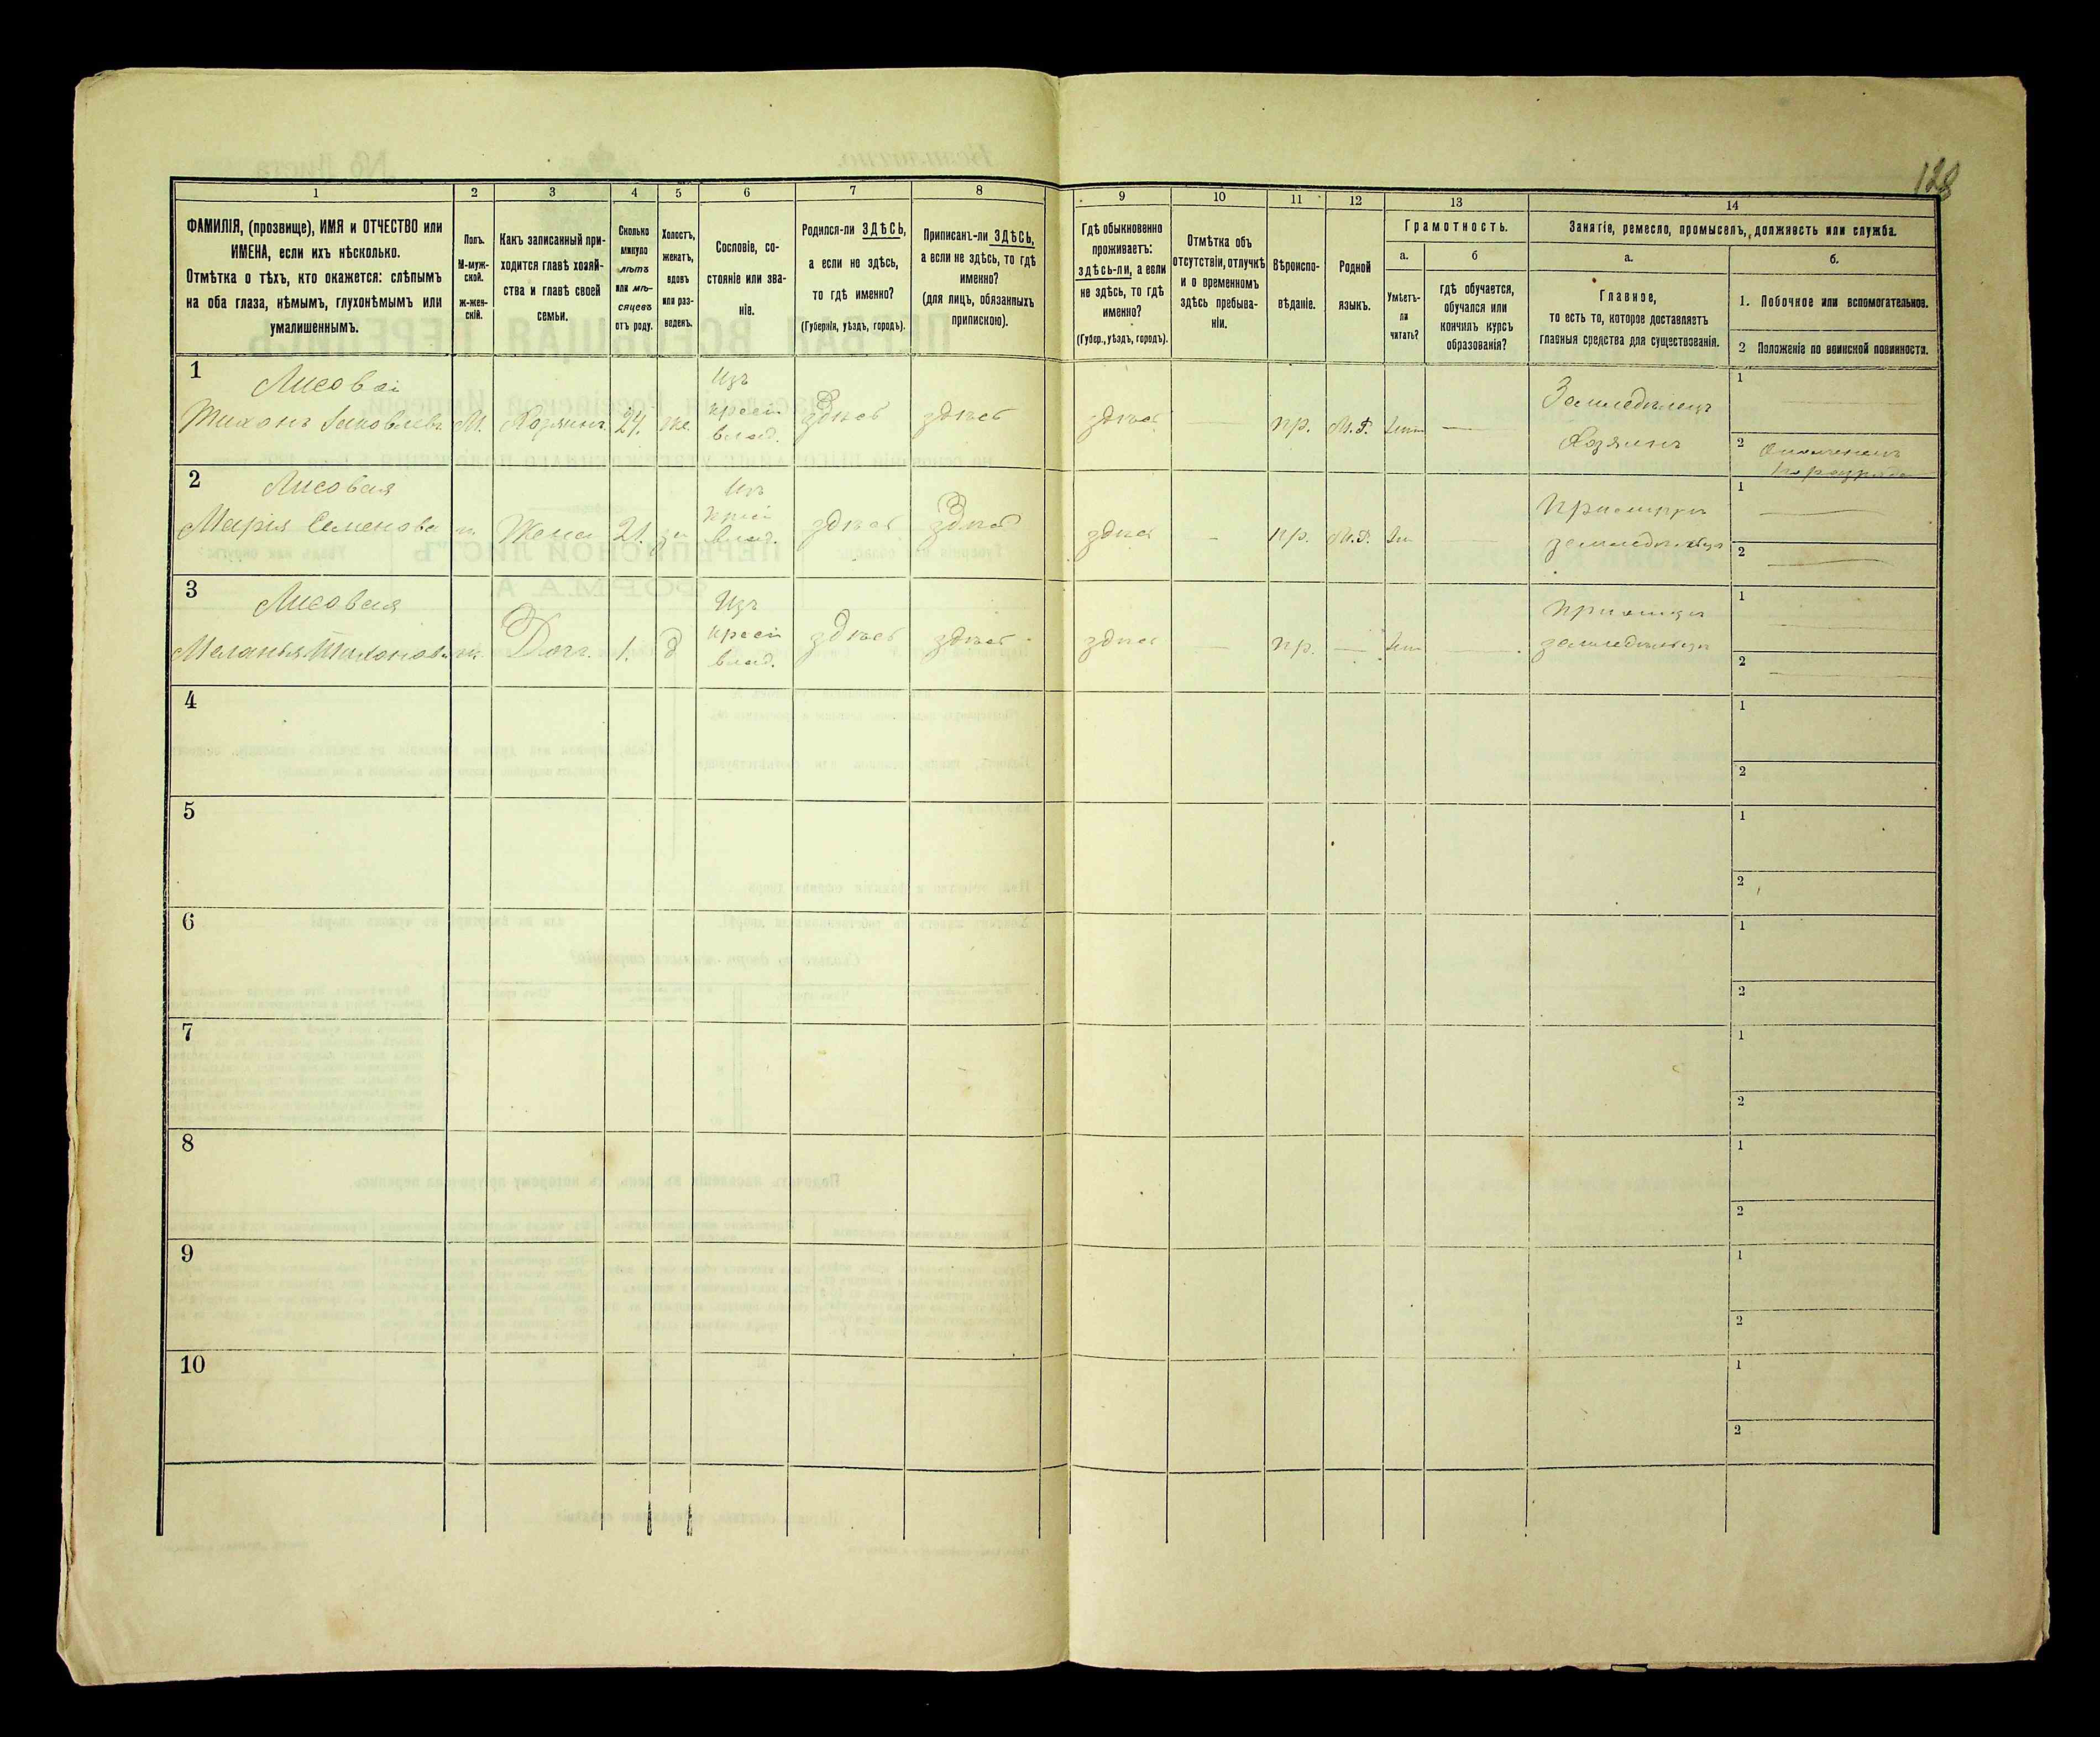 128
1
2
3
4
5
6
7
8
9
10
11
12
13
14
ФАМИЛІЯ, (прозвище), ИМЯ и ОТЧЕСТВО или
ИМЕНА, если ихъ нѣсколько.
Отмѣтка о тѣхъ, кто окажется: слѣпымъ
на оба глаза, нѣмымъ, глухонѣмымъ или
умалишеннымъ.
Полъ.
М-муж-
ской.
ж-жен-
скій.
Какъ записанный при-
ходится главѣ хозяй-
ства и главѣ своей
семьи.
Сколько
минуло
лѣтъ
или мѣ-
сяцевъ
отъ роду.
Холостъ,
женатъ,
вдовъ
или раз-
веденъ.
Сословіе, со-
стояніе или зва-
ніе.
Родился-ли ЗДѢСЬ,
а если не здѣсь,
то гдѣ именно?
(Губернія, уѣздъ, городъ).
Приписанъ-ли ЗДѢСЬ,
а если не здѣсь, то гдѣ
именно?
(для лицъ, обязанныхъ
припискою).
Гдѣ обыкновенно
проживаетъ:
здѣсь-ли, а если
не здѣсь, то гдѣ
именно?
(Губер., уѣздъ, городъ).
Отмѣтка объ
отсутствіи, отлучкѣ
и о временномъ
здѣсь пребыва-
ніи.
Вѣроиспо-
вѣданіе.
Родной
языкъ.
Грамотность.
а.
Умѣетъ-
ли
читать?
б
гдѣ обучается,
обучался или
кончилъ курсъ
образованія?
Занятіе, ремесло, промыселъ, должность или служба.
а.
Главное,
то есть то, которое доставляетъ
главныя средства для существованія.
б.
1. Побочное или вспомогательное.
2 Положеніе по воинской повинности.
1
Лисовой
Тихонъ Яковлевъ
М.
Хозяинъ
24.
же.
Изъ
крест
влад.
здѣсь
здѣсь
здѣсь
—
пр.
М.Р.
—
Земледѣлецъ
Хозяинъ
1
2
2
Лисовая
Марія Семенова
Жена
21.
Изъ
крест
влад.
здѣсь
здѣсь
здѣсь
—
пр.
М.Р.
1
2
3
Лисовая
Меланья Тихонова
Доч.
1.
д
Изъ
крест
влад.
здѣсь
здѣсь
здѣсь
—
пр.
—
1
2
4
1
2
5
1
2
6
1
2
7
1
2
8
1
2
9
1
2
10
1
2